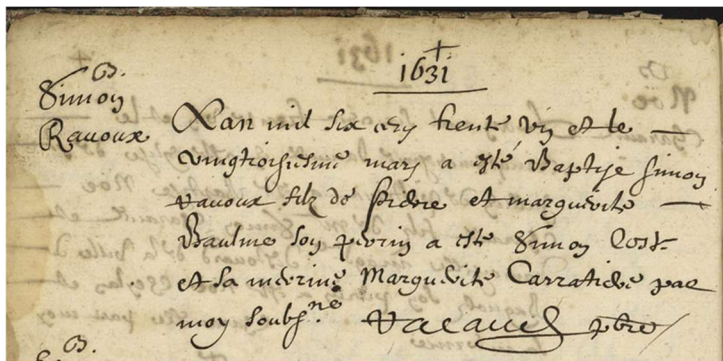 1631
B.
Simon
Ravoux
L'an mil six cens trente un et le
vingtroisiesme mars a esté Baptise simon
ravoux filz de et marguerite
Baulme son perrin a este Simon Cost
et sa merine Marguerite Carratiere par
moy soubs.né ptre
B.